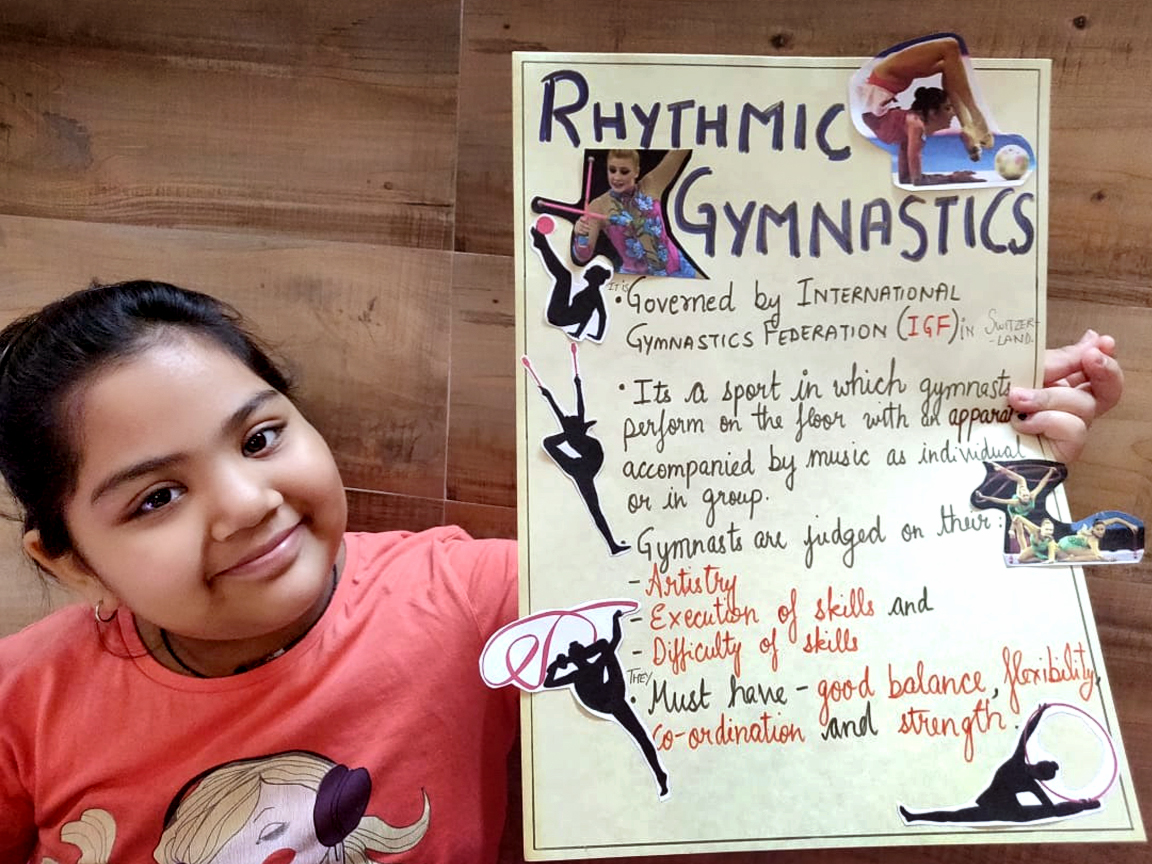 RHYTHMIC
GYMNASTICS
It is
• Governed by INTERNATIONAL
GYMNASTICS FEDERATION (IGF) in SWITZER-
-LAND.
• Its a sport in which gymnasts
perform on the floor with an apparat
accompanied by music as individual
or in group.
Gymnasts are judged on their:
- Artistry
- Execution of skills and
- Difficulty of skills
THEY
• Must have - good balance, flexibility,
co-ordination and strength.